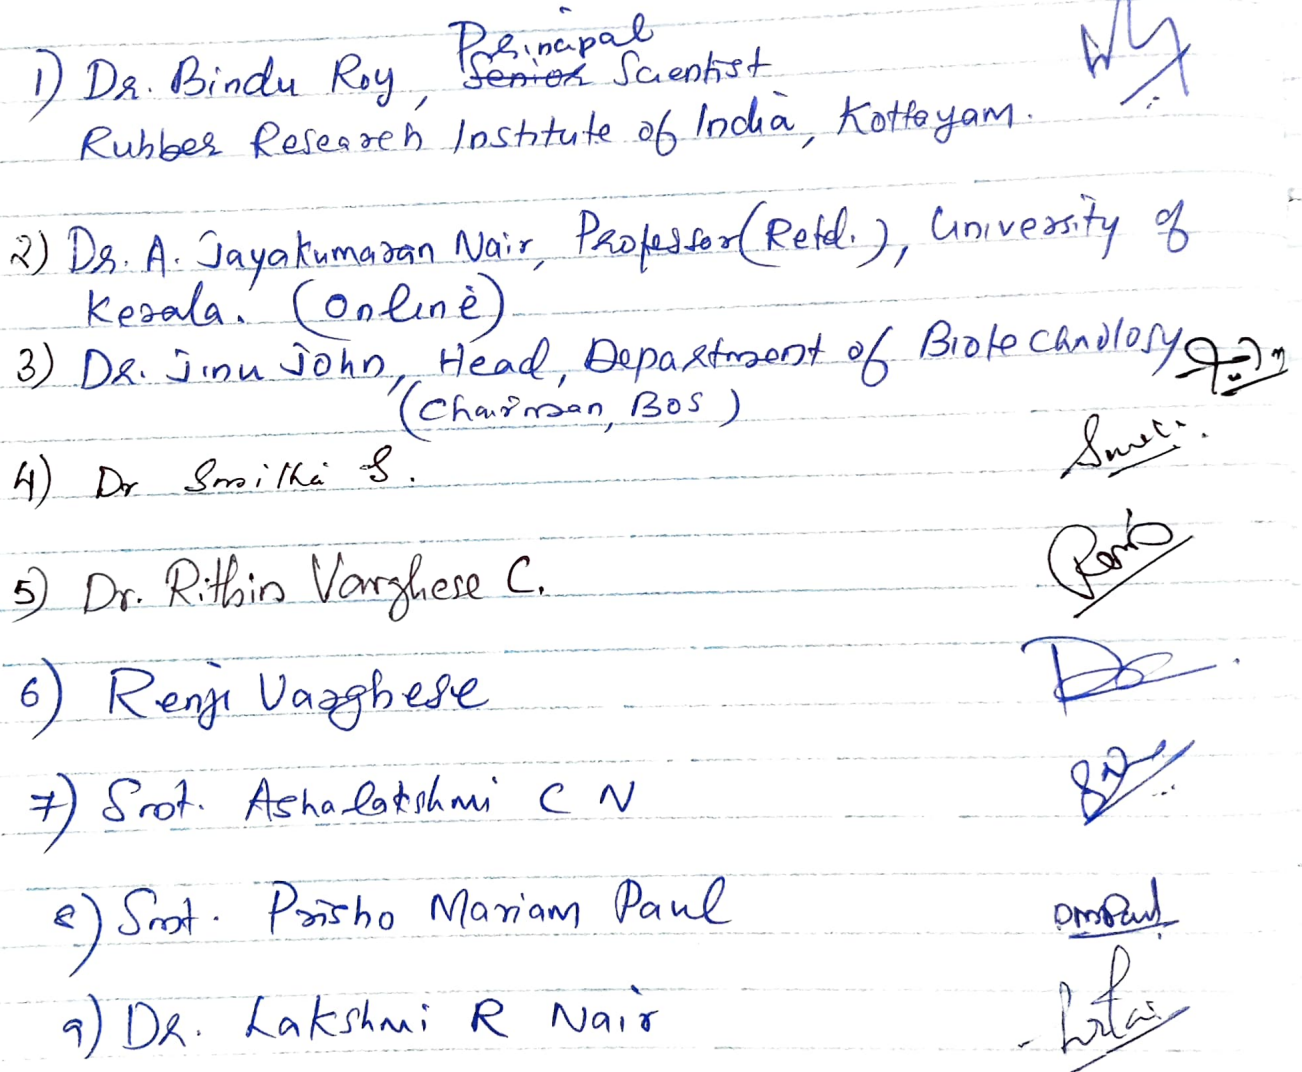 Principal
1) Dr. Bindu Roy, Senior Scientist
Rubber Research Institute of India, Kottayam.
2) Dr. A. Jayakumaran Nair, Professor (Retd.), University of
Kerala. (Online)
3) Dr. Jinu John, Head, Department of Biotechnology
(Chairman, BOS)
4) Dr Smitha S.
5) Dr. Rithin Varghese C.
6) Renji Varghese
7) Smt. Ashalakshmi C N
8) Smt. Prisho Mariam Paul
PMPaul
9) Dr. Lakshmi R Nair